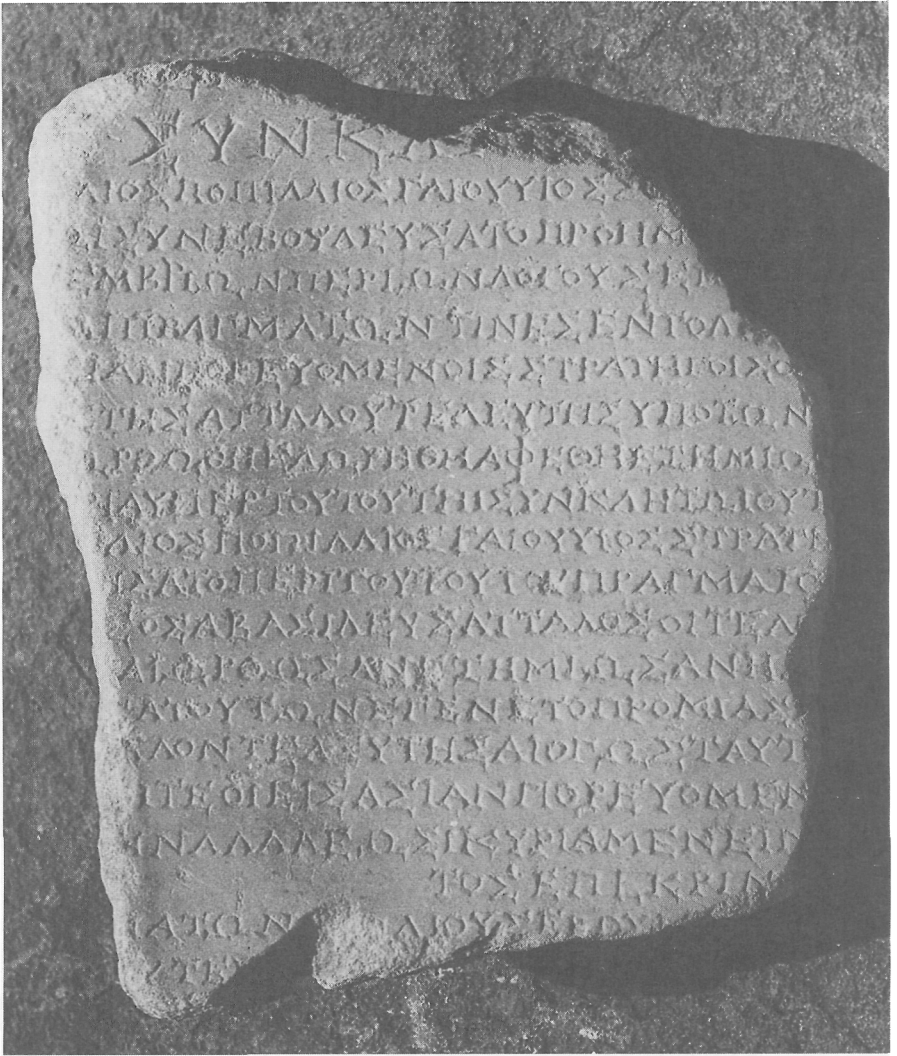 ΣΥΝΚΛ
ΑΙΟΣ ΠΟΠΙΛΛΙΟΣ ΓΑΙΟΥ ΥΙΟΣ Σ
ΩΙ ΣΥΝΕΒΟΥΛΕΥΣΑΤΟ ΠΡΟ ΗΜ
ΕΜΒΡΙΩΝ ΠΕΡΙ ΩΝ ΛΟΓΟΥΣ ΕΠ
ΠΡΑΓΜΑΤΩΝ ΤΙΝΕΣ ΕΝΤΟΛΑ
ΙΑΝ ΠΟΡΕΥΟΜΕΝΟΙΣ ΣΤΡΑΤΗΓΟΙΣ Ο
ΤΗΣ ΑΤΤΑΛΟΥ ΤΕΛΕΥΤΗΣ ΥΠΟ ΤΩΝ
ΡΘΩΘΗ ΕΔΩΡΗΘΗ ΑΦΕΘΗ ΕΖΗΜΙΩ
ΙΑ ΥΠΕΡ ΤΟΥΤΟΥ ΤΗΙ ΣΥΝΚΛΗΤΩΙ ΟΥΤ
ΑΙΟΣ ΠΟΠΙΛΛΙΟΣ ΓΑΙΟΥ ΥΙΟΣ ΣΤΡΑΤΗ
ΙΣΑΤΟ ΠΕΡΙ ΤΟΥΤΟΥ ΤΟΥ ΠΡΑΓΜΑΤΟ
ΟΣΑ ΒΑΣΙΛΕΥΣ ΑΤΤΑΛΟΣ ΟΙ ΤΕ ΛΟ
ΔΙΩΡΘΩΣΑΝ ΕΖΗΜΙΩΣΑΝ Η
ΤΟΥΤΩΝ ΕΓΕΝΕΤΟ ΠΡΟ ΜΙΑΣ
ΛΟΝ ΤΕΛΕΥΤΗΣΑΙ ΟΠΩΣ ΤΑΥΤ
ΤΕ ΟΙ ΕΙΣ ΑΣΙΑΝ ΠΟΡΕΥΟΜΕΝ
ΙΝ ΑΛΛΑ ΕΩΣΙ ΚΥΡΙΑ ΜΕΝΕΙΝ
ΤΟΣ ΕΠΙΚΡΙΝ
ΜΑΤΩΝ ΛΙΟΥ ΣΕΡΟΥΙ
ΣΤΕ